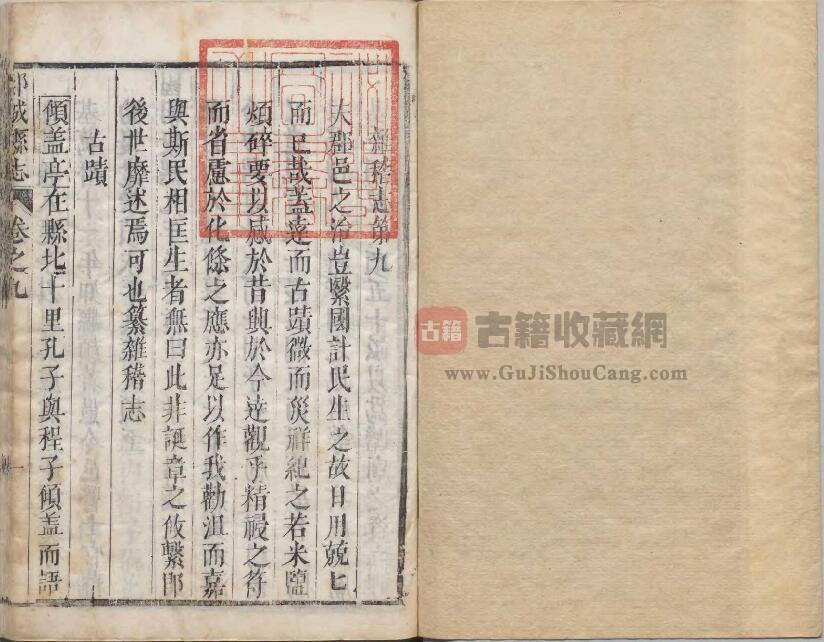 雜稽志第九
夫郡邑之治豈繄國計民生之故日用兢匕
而已哉盖遠而古蹟微而災祥絶之若米鹽
煩碎要以感於昔與於今達觀乎精祲之符
而省慮於化條之應亦足以作我勸沮而嘉
與斯民相匡生者無曰此非誕章之攸繫即
後世靡述焉可也纂雜稽志
古蹟
傾盖亭在縣北十里孔子與程子傾盖而語
郯城縣志
卷之九
一
古籍
古籍收藏網
www.GuJiShouCang.com